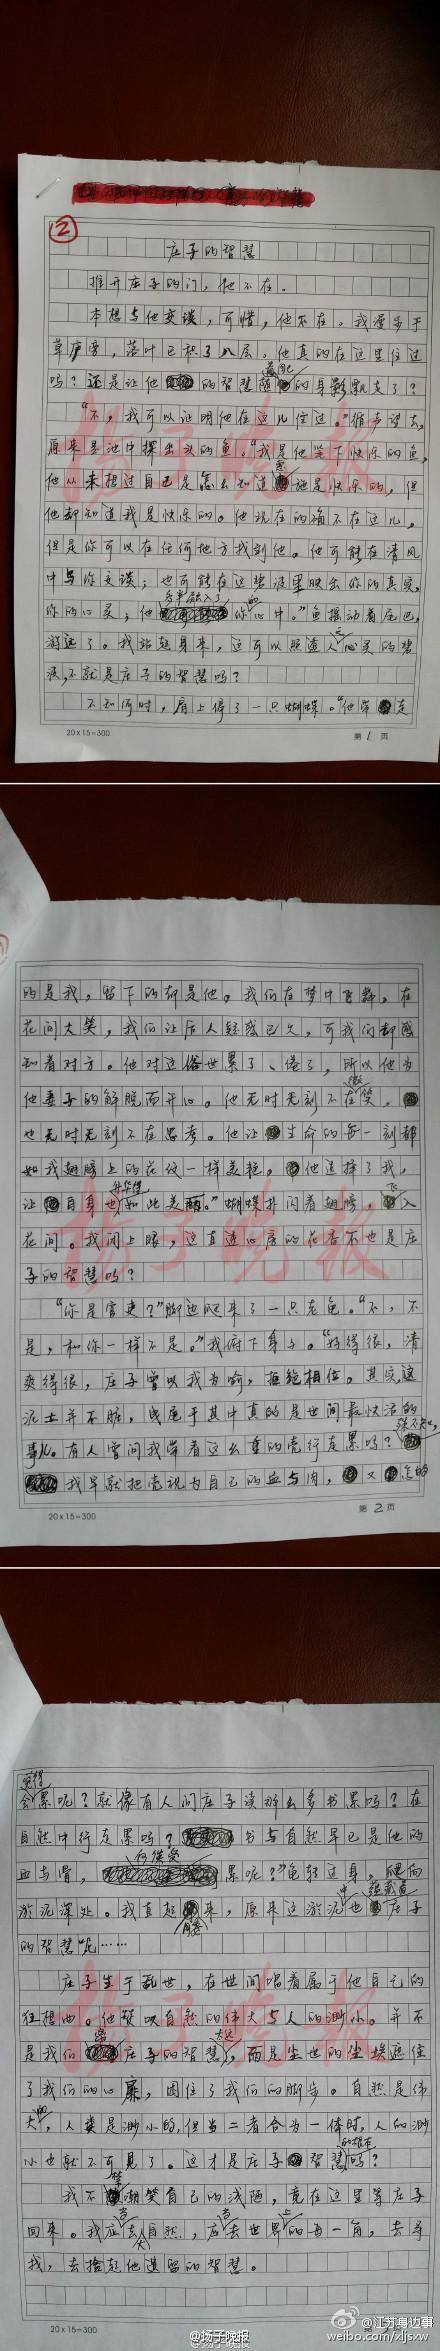 ②
庄子的智慧
推开庄子的门，他不在。
本想与他交谈，可惜，他不在。我漫步于
草庐旁，落叶已积了八层。他真的在这里住过
吗？还是让他的智慧随着自己的身影飘走了？
“不，我可以证明他在这儿住过。”循声望去，
原来是池中探出头的鱼。“我是他笔下快乐的鱼，
他从未想过自己是怎么知道鱼是快乐的，但
他却知道我是快乐的。他现在的确不在这儿，
但是你可以在任何地方找到他。他可能在清风
中与你交谈；也可能在这碧波里映出你的真实，
你的心灵；他早融入了你的心中。”鱼摆动着尾巴，
游远了。我站起身来，这可以照透人心灵的碧
波，不就是庄子的智慧吗？
不知何时，肩上停了一只蝴蝶。“他带走
20×15=300
第1页
的是我，留下的却是他。我们在梦中飞舞，在
花间大笑，我们让后人疑惑已久，可我们却感
知着对方。他对这俗世累了、倦了，所以他为
他妻子的解脱而开心。他无时无刻不在微笑，
也无时无刻不在思考。他让生命的每一刻都
如我翅膀上的花纹一样美艳。他选择了我，
让自身也升华得如此美丽。”蝴蝶扑闪着翅膀，飞入
花间。我闭上眼，这直透心房的花香不也是庄
子的智慧吗？
“你是官吏？”脚边爬来了一只老龟。“不，不
是，和你一样不是。”我俯下身子。“好得很，清
爽得很，庄子曾以我为喻，拒绝相位。其实，这
泥土并不脏，曳尾于其中真的是世间最快活的
事儿。有人曾问我带着这么重的壳行走累吗？殊不知，
我早就把壳视为自己的血与肉，又怎的
20×15=300
第2页
会觉得累呢？就像有人问庄子读那么多书累吗？在
自然中行走累吗？书与自然早已是他的
血与骨，何谈受累呢？”龟转过身，爬向
淤泥深处。我直起腰来，原来这淤泥中也蕴藏着庄子
的智慧呢……
庄子生于乱世，在世间唱着属于他自己的
狂想曲。他赞叹自然的伟大与人的渺小。并不
是我们离庄子的智慧太远，而是尘世的尘埃遮住
了我们的心扉，困住了我们的脚步。自然是伟
大的，人类是渺小的，但当二者合为一体时，人的渺
小也就不可见了。这才是庄子智慧的根本吗？
我不禁嘲笑自己的浅陋，竟在这里等庄子
回来。我应去大自然，应去世界上的每一角，去寻
找，去拾起他遗留的智慧。
20×15=300
扬子晚报
@扬子晚报
@江苏身边事
weibo.com/xljsxw